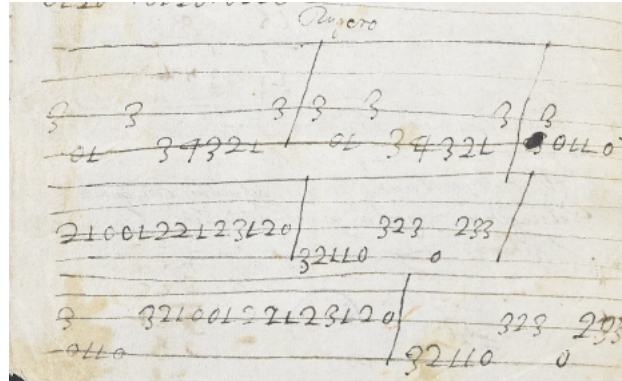 Rugero
3 3 3 3 3 3 3
01 34321 01 34321 30110
2100122123120 323 233
32110 0
3 32100122123120 323 233
0110 32110 0